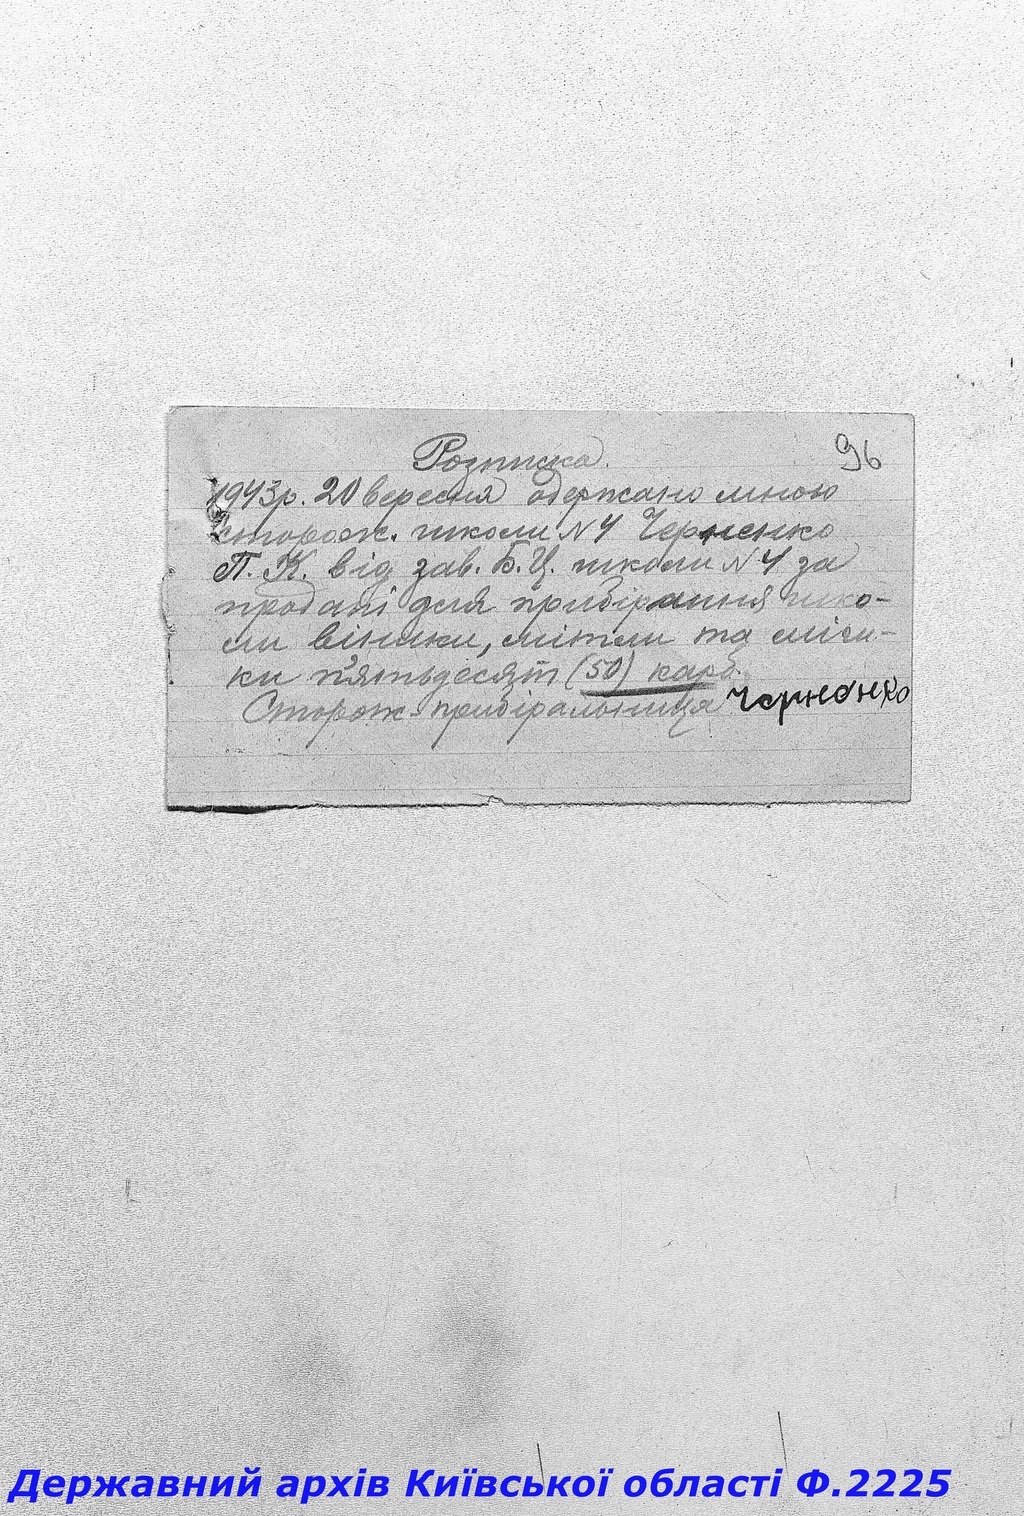 96
Розписка.
1943р. 20 вересня одержано мною
сторож. школи №4 Черненко
П. К. від зав. Б.Ц. школи №4 за
продані для прибірання шко-
ли віники, мітли та міш-
ки п'ятьдесят (50) карб.
Сторож-прибіральниця Черненко
Державний архів Київської області Ф.2225